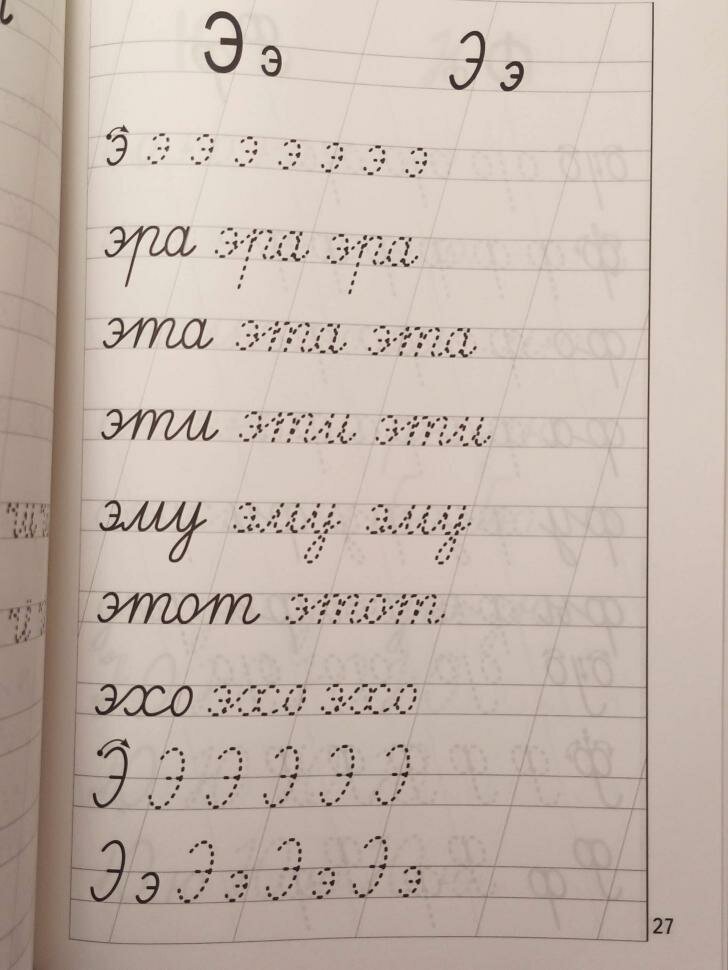 Э э Э э
э э э э э э э э
эра эра эра
эта эта эта
эти эти эти
эму эму эму
этот этот
эхо эхо эхо
Э Э Э Э Э Э
Э э Э э Э э Э э
27